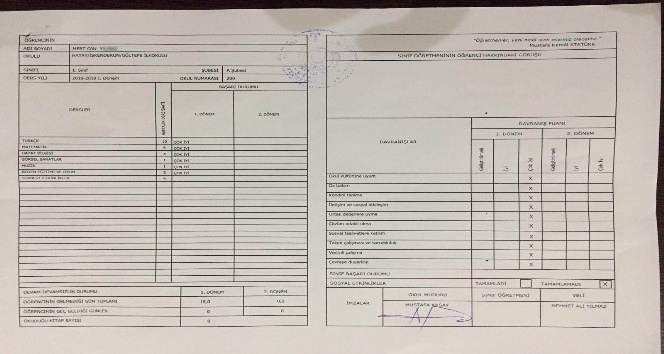 ÖĞRENCİNİN
ADI SOYADI MERT CAN
OKULU HATAY/İSKENDERUN/GÜLTEPE İLKOKULU
SINIFI 1. Sınıf ŞUBESİ A Şubesi
DERS YILI 2018-2019 I. Dönem OKUL NUMARASI 200
DERSLER
BAŞARI DURUMU
1. DÖNEM 2. DÖNEM
TÜRKÇE 10 ÇOK İYİ
MATEMATİK 5 ÇOK İYİ
HAYAT BİLGİSİ 4 ÇOK İYİ
GÖRSEL SANATLAR 1 ÇOK İYİ
MÜZİK 1 ÇOK İYİ
BEDEN EĞİTİMİ VE OYUN 5 ÇOK İYİ
SERBEST ETKİNLİKLER 4
DEVAM-DEVAMSIZLIK DURUMU 1. DÖNEM 2. DÖNEM
ÖĞRENCİNİN GELMEDİĞİ GÜN TOPLAMI 18,0 0,0
ÖĞRENCİNİN GEÇ GELDİĞİ GÜNLER 0 0
OKUDUĞU KİTAP SAYISI 0
"Öğretmenler, yeni nesil sizin eseriniz olacaktır."
Mustafa Kemal ATATÜRK
SINIF ÖĞRETMENİNİN ÖĞRENCİ HAKKINDAKİ GÖRÜŞÜ
DAVRANIŞLAR
DAVRANIŞ PUANI
1. DÖNEM 2. DÖNEM
Geliştirilmeli İyi Çok İyi Geliştirilmeli İyi Çok İyi
Okul kültürüne uyum X
Öz bakım X
Kendini tanıma X
İletişim ve sosyal etkileşim X
Ortak değerlere uyma X
Çözüm odaklı olma X
Sosyal faaliyetlere katılım X
Takım çalışması ve sorumluluk X
Verimli çalışma X
Çevreye duyarlılık X
SINIF BAŞARI DURUMU
SOSYAL ETKİNLİKLER TAMAMLADI TAMAMLAMADI X
İMZALAR OKUL MÜDÜRÜ SINIF ÖĞRETMENİ VELİ
MUSTAFA MEHMET ALİ YILMAZ